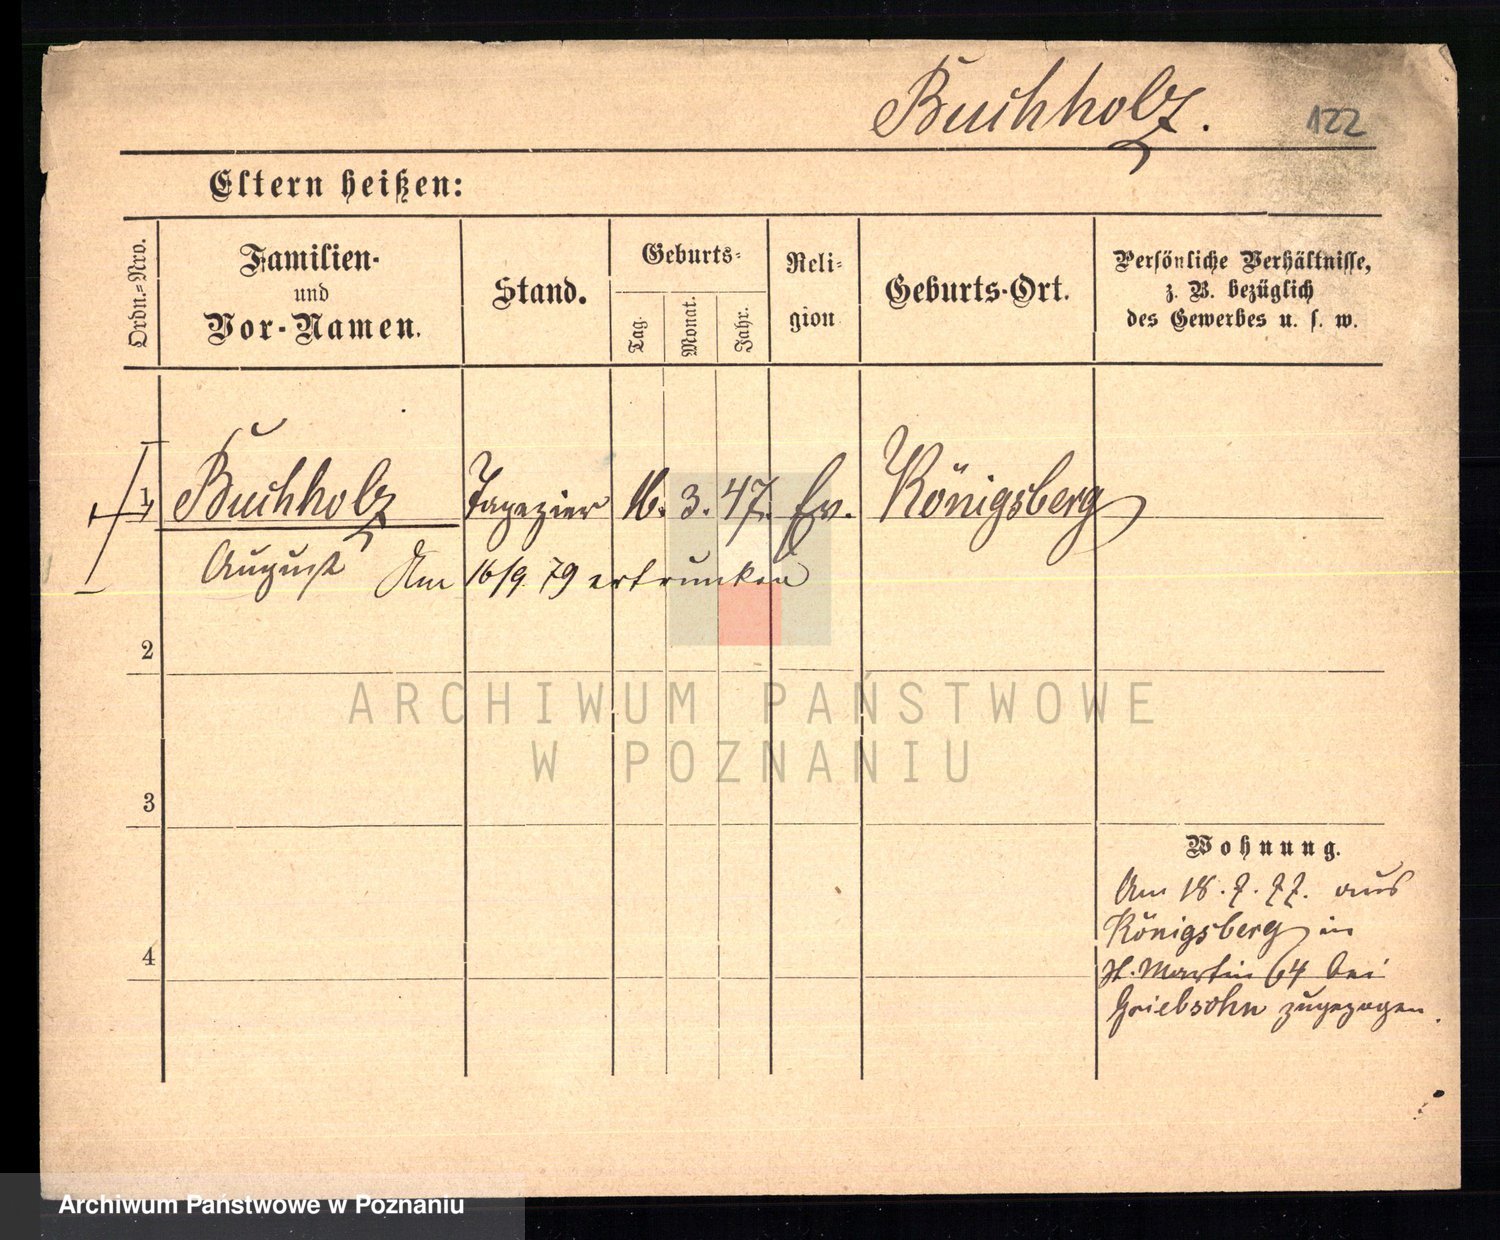 Buchholz.
122
Eltern heißen:
Ordn.-Nro.
Familien-
und
Vor-Namen.
Stand.
Geburts-
Tag.
Monat.
Jahr.
Reli-
gion
Geburts-Ort.
Persönliche Verhältnisse,
z. B. bezüglich
des Gewerbes u. s. w.
1 Buchholz Tapezier 16. 3. 47. Ev. Königsberg
August Am 16/9. 79 ertrunken
2
3
4
Wohnung.
Am 18. 7. 77. aus
Königsberg in
St. Martin 64 bei
Griebsohn zugezogen.
ARCHIWUM PAŃSTWOWE
W POZNANIU
Archiwum Państwowe w Poznaniu